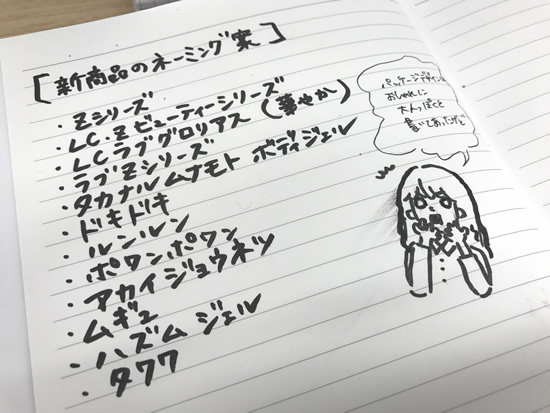 [新商品のネーミング案]
・Zシリーズ
・LC.Zビューティーシリーズ
・LCラブグロリアス(華やか)
・ラブZシリーズ
・タカナルムナモト ボディジェル
・ドキドキ
・ルンルン
・ポワンポワン
・アカイジョウネツ
・ムギュ
・ハズムジェル
・タワワ
パッケージデザインは
おしゃれに
大人っぽくと
書いてあったけど